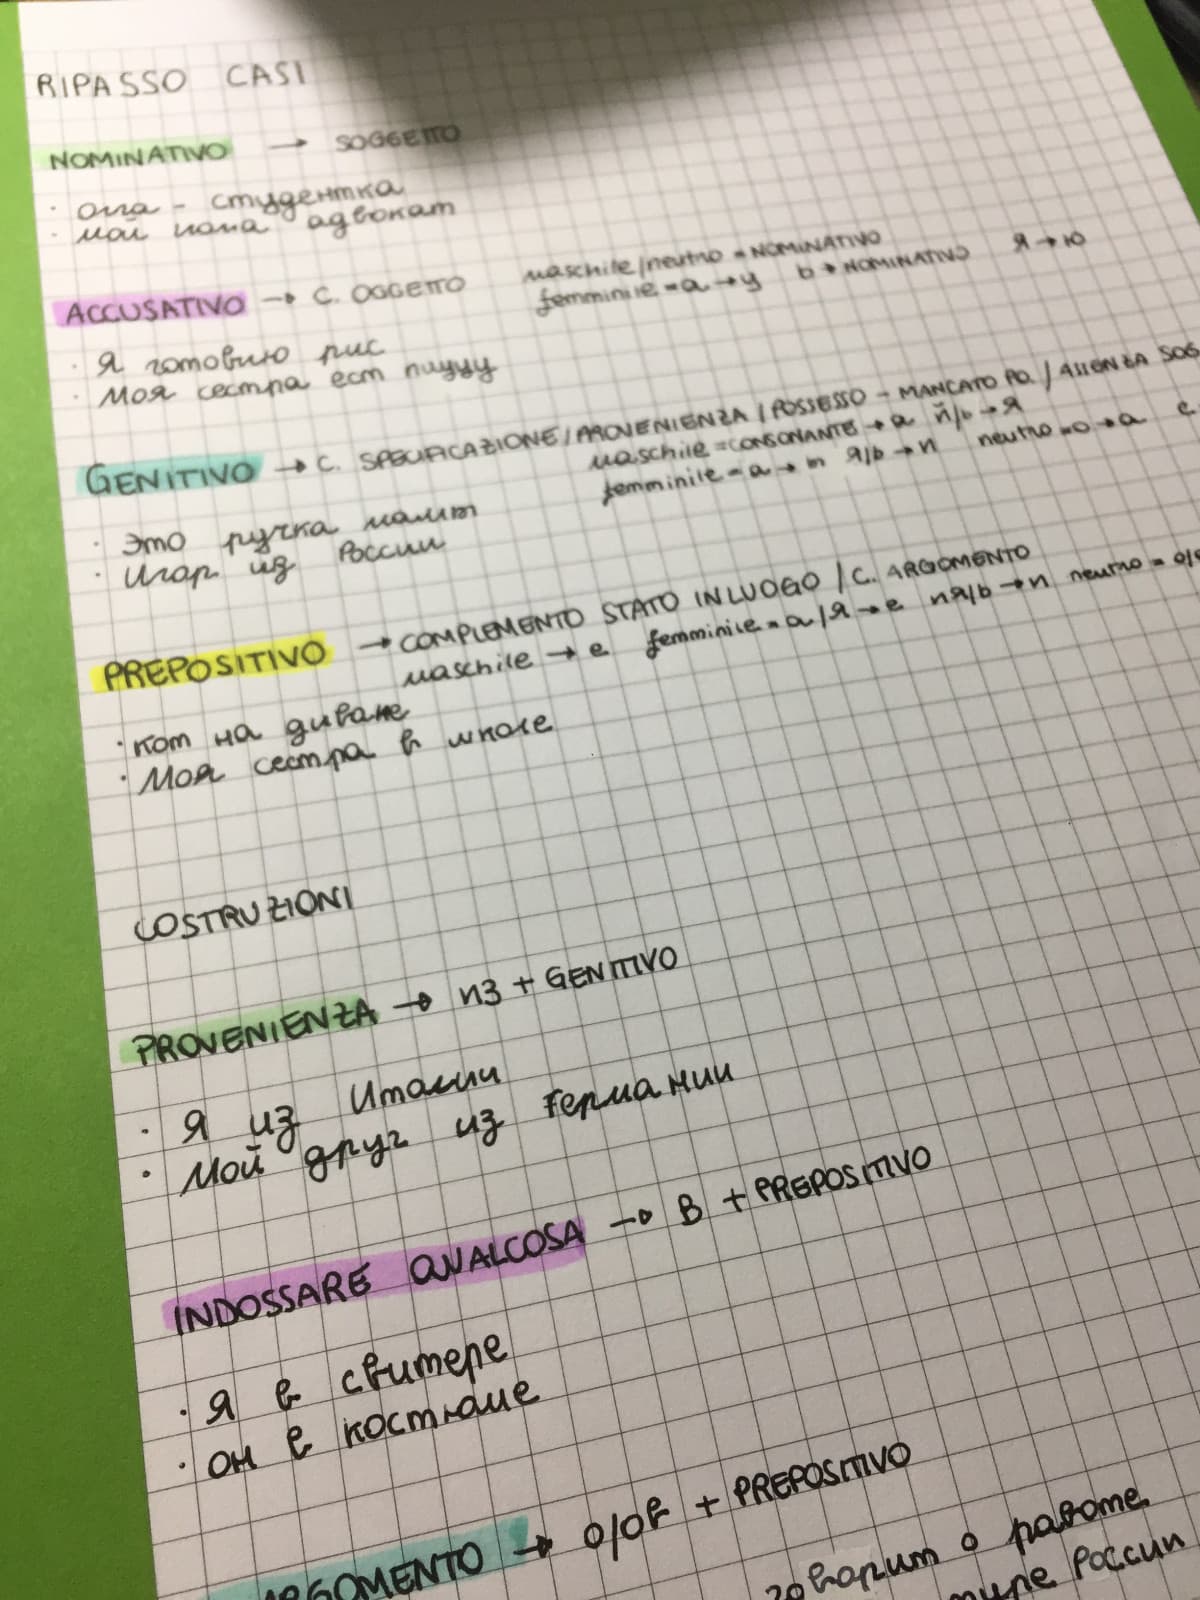 RIPASSO CASI
NOMINATIVO → SOGGETTO
· Олга - студентка
· мой папа адвокат
ACCUSATIVO → C. OGGETTO maschile/neutro = NOMINATIVO
femminile = а → у ь → NOMINATIVO я → ю
· Я готовию рис
· Моя сестра ест пиццу
GENITIVO → C. SPECIFICAZIONE/PROVENIENZA/POSSESSO - MANCATO PO./ASSENZA SOG
maschile = CONSONANTE → а й/ь → я
femminile = а → ы я/ь → и neutro = о → а е
· Это ручка мамы
· Игар из России
PREPOSITIVO → COMPLEMENTO STATO IN LUOGO / C. ARGOMENTO
maschile → е femminile = а/я → е ия/ь → и neutro = о/е
· кот на диване
· Моя сестра в школе
COSTRUZIONI
PROVENIENZA → из + GENITIVO
· Я из Италии
· Мой друг из Германии
INDOSSARE QUALCOSA → в + PREPOSITIVO
· Я в свитере
· он в костюме
ARGOMENTO → о/об + PREPOSITIVO
говорит о работе
России